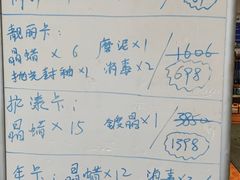 靓丽卡:
晶蜡×6 磨泥×1 1606
抛光封釉×1 消毒×2 698
护漆卡:
晶蜡×15 镀晶×1 3850
1598
年卡: 晶蜡×12 消毒